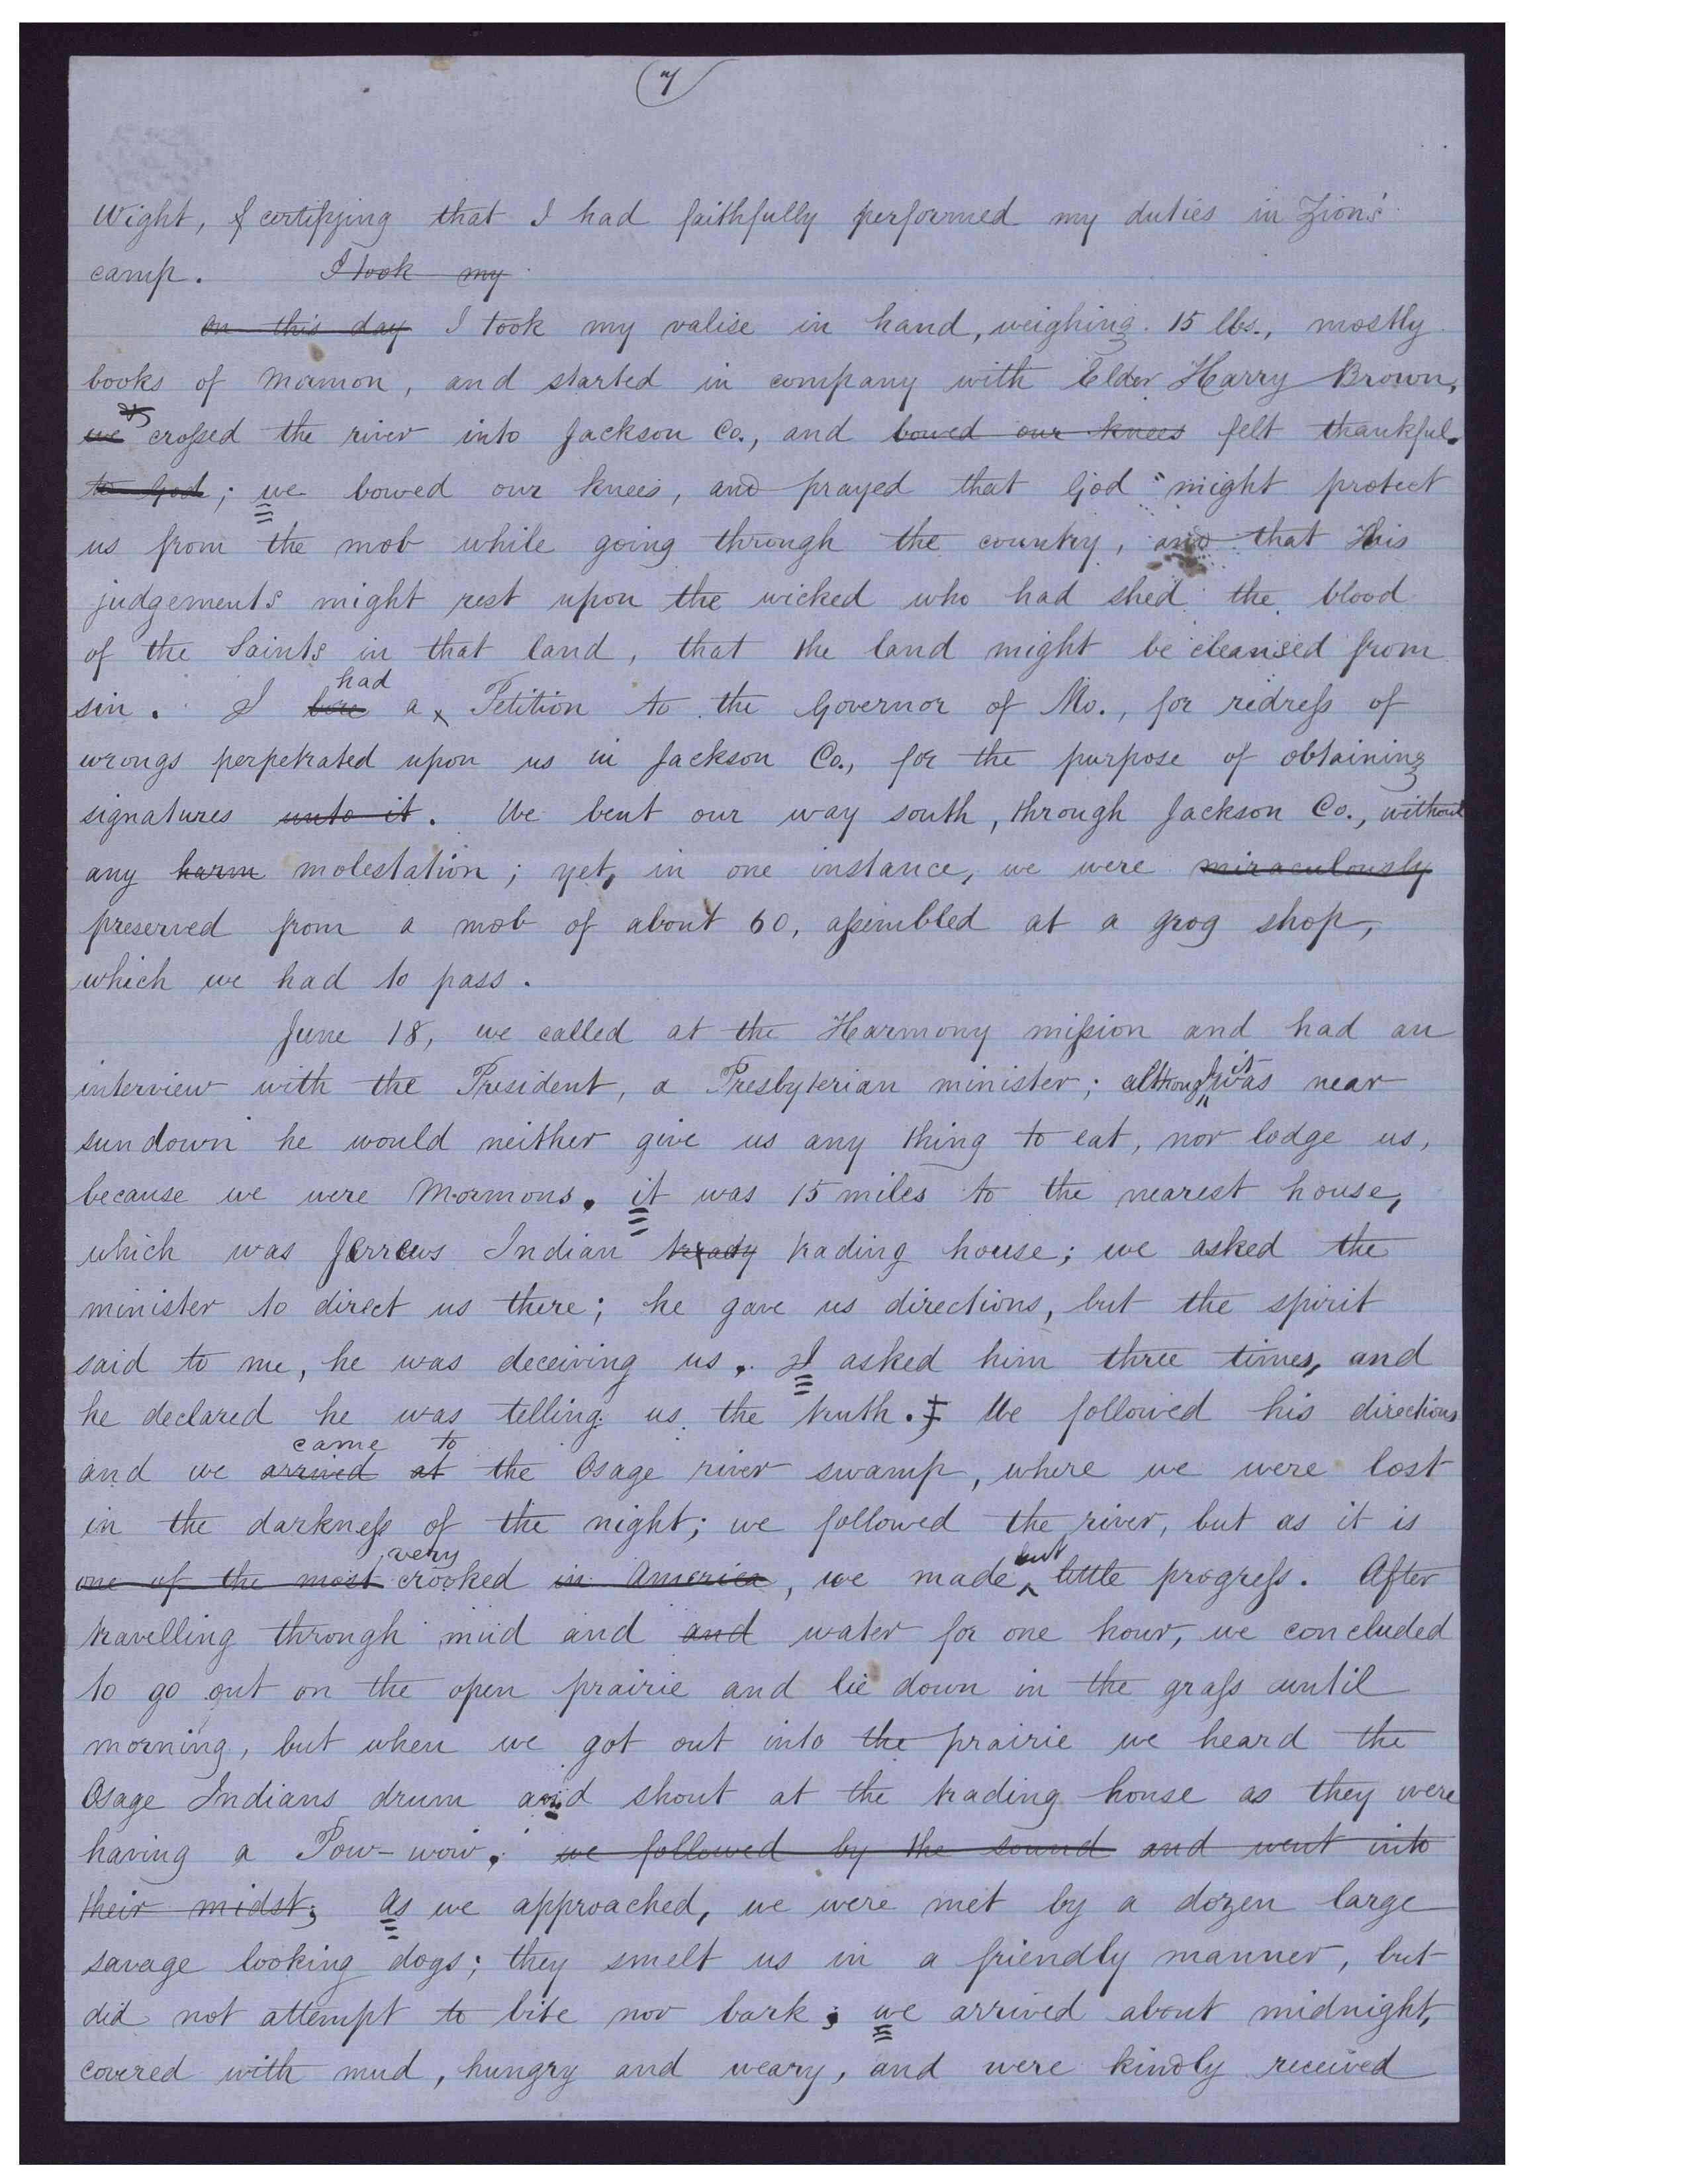 7
Wight, & certifying that I had faithfully performed my duties in Zion's
camp. I took my
on this day I took my valise in hand, weighing 15 lbs., mostly
books of mormon, and started in company with Elder Harry Brown,
we crossed the river into Jackson Co., and bowed our knees felt thankful.
to God; we bowed our knees, and prayed that God might protect
us from the mob while going through the country, and that His
judgements might rest upon the wicked who had shed the blood
of the Saints in that land, that the land might be cleansed from
had
sin. I bore a Petition to the Governor of Mo., for redress of
wrongs perpetrated upon us in Jackson Co., for the purpose of obtaining
signatures unto it. We bent our way south, through Jackson Co., without
any harm molestation; yet, in one instance, we were miraculously
preserved from a mob of about 60, assembled at a grog shop,
which we had to pass.
June 18, we called at the Harmony mission and had an
interview with the President, a Presbyterian minister; although it was near
sundown he would neither give us any thing to eat, nor lodge us,
because we were Mormons. it was 15 miles to the nearest house,
which was Jerrews Indian trading house; we asked the
minister to direct us there; he gave us directions, but the spirit
said to me, he was deceiving us. I asked him three times, and
he declared he was telling us the truth. We followed his directions
came to
and we arrived at the Osage river swamp, where we were lost
in the darkness of the night; we followed the river, but as it is
very but
one of the most crooked in America, we made little progress. After
travelling through mud and and water for one hour, we concluded
to go out on the open prairie and lie down in the grass until
morning, but when we got out into the prairie we heard the
Osage Indians drum and shout at the trading house as they were
having a Pow-wow. we followed by the sound and went into
their midst; as we approached, we were met by a dozen large
savage looking dogs; they smelt us in a friendly manner, but
did not attempt to bite nor bark; we arrived about midnight,
covered with mud, hungry and weary, and were kindly received